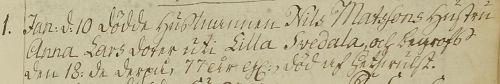 1. Jan: d. 10 dödde Husmannen Nils Matssons Hustru
Anna Lars doter uti Lilla Svedala, och begrofs
den 18:de derpå, 77 år gl:, död af